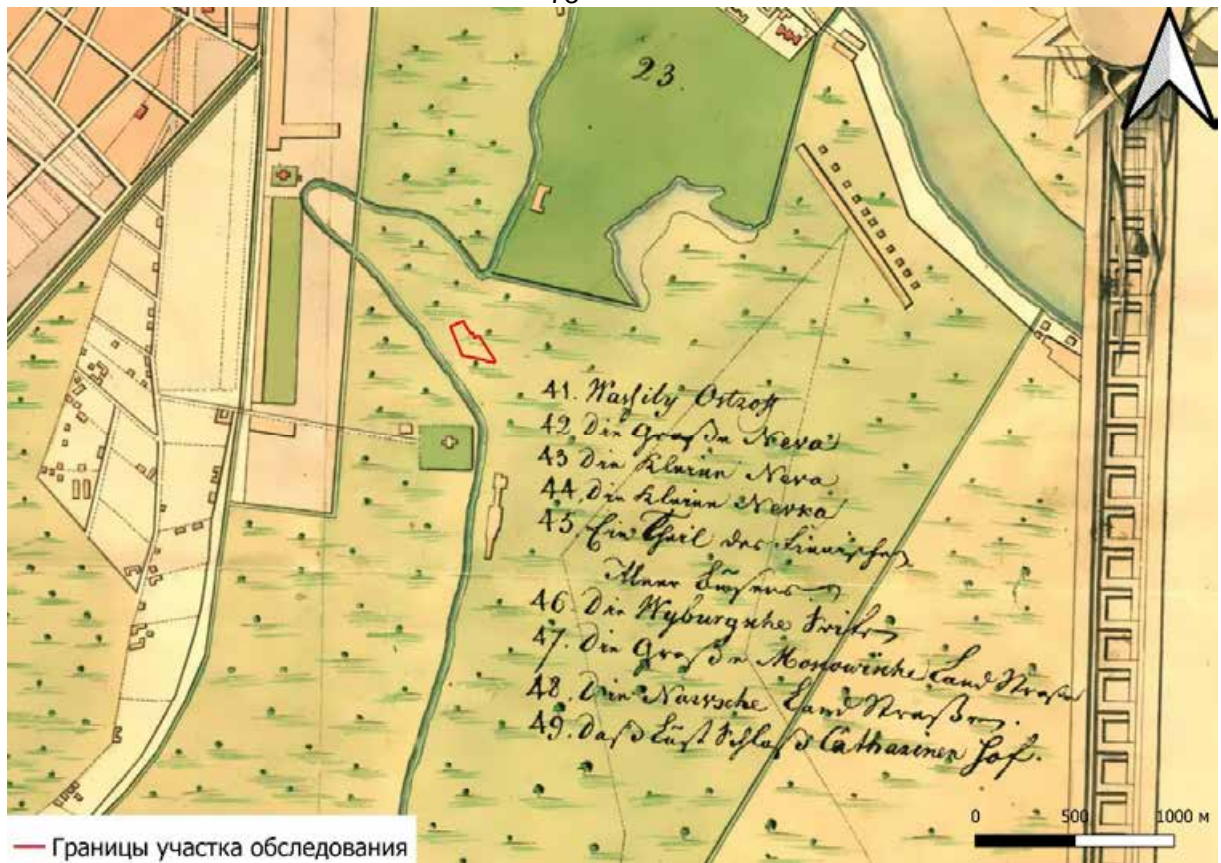 23.
41. Wassily Ostroff
42. Die Große Neva
43 Die Kleine Neva
44. Die Kleine Nevka
45. Ein Theil des Finnischen
Meer Busens
46. Die Wyburgsche Seite
47. Die Große Moscowische Land Straße
48. Die Narvsche Land Straße.
49. Daß Lust Schloß Catharinen Hof.
0 500 1000 м
Границы участка обследования